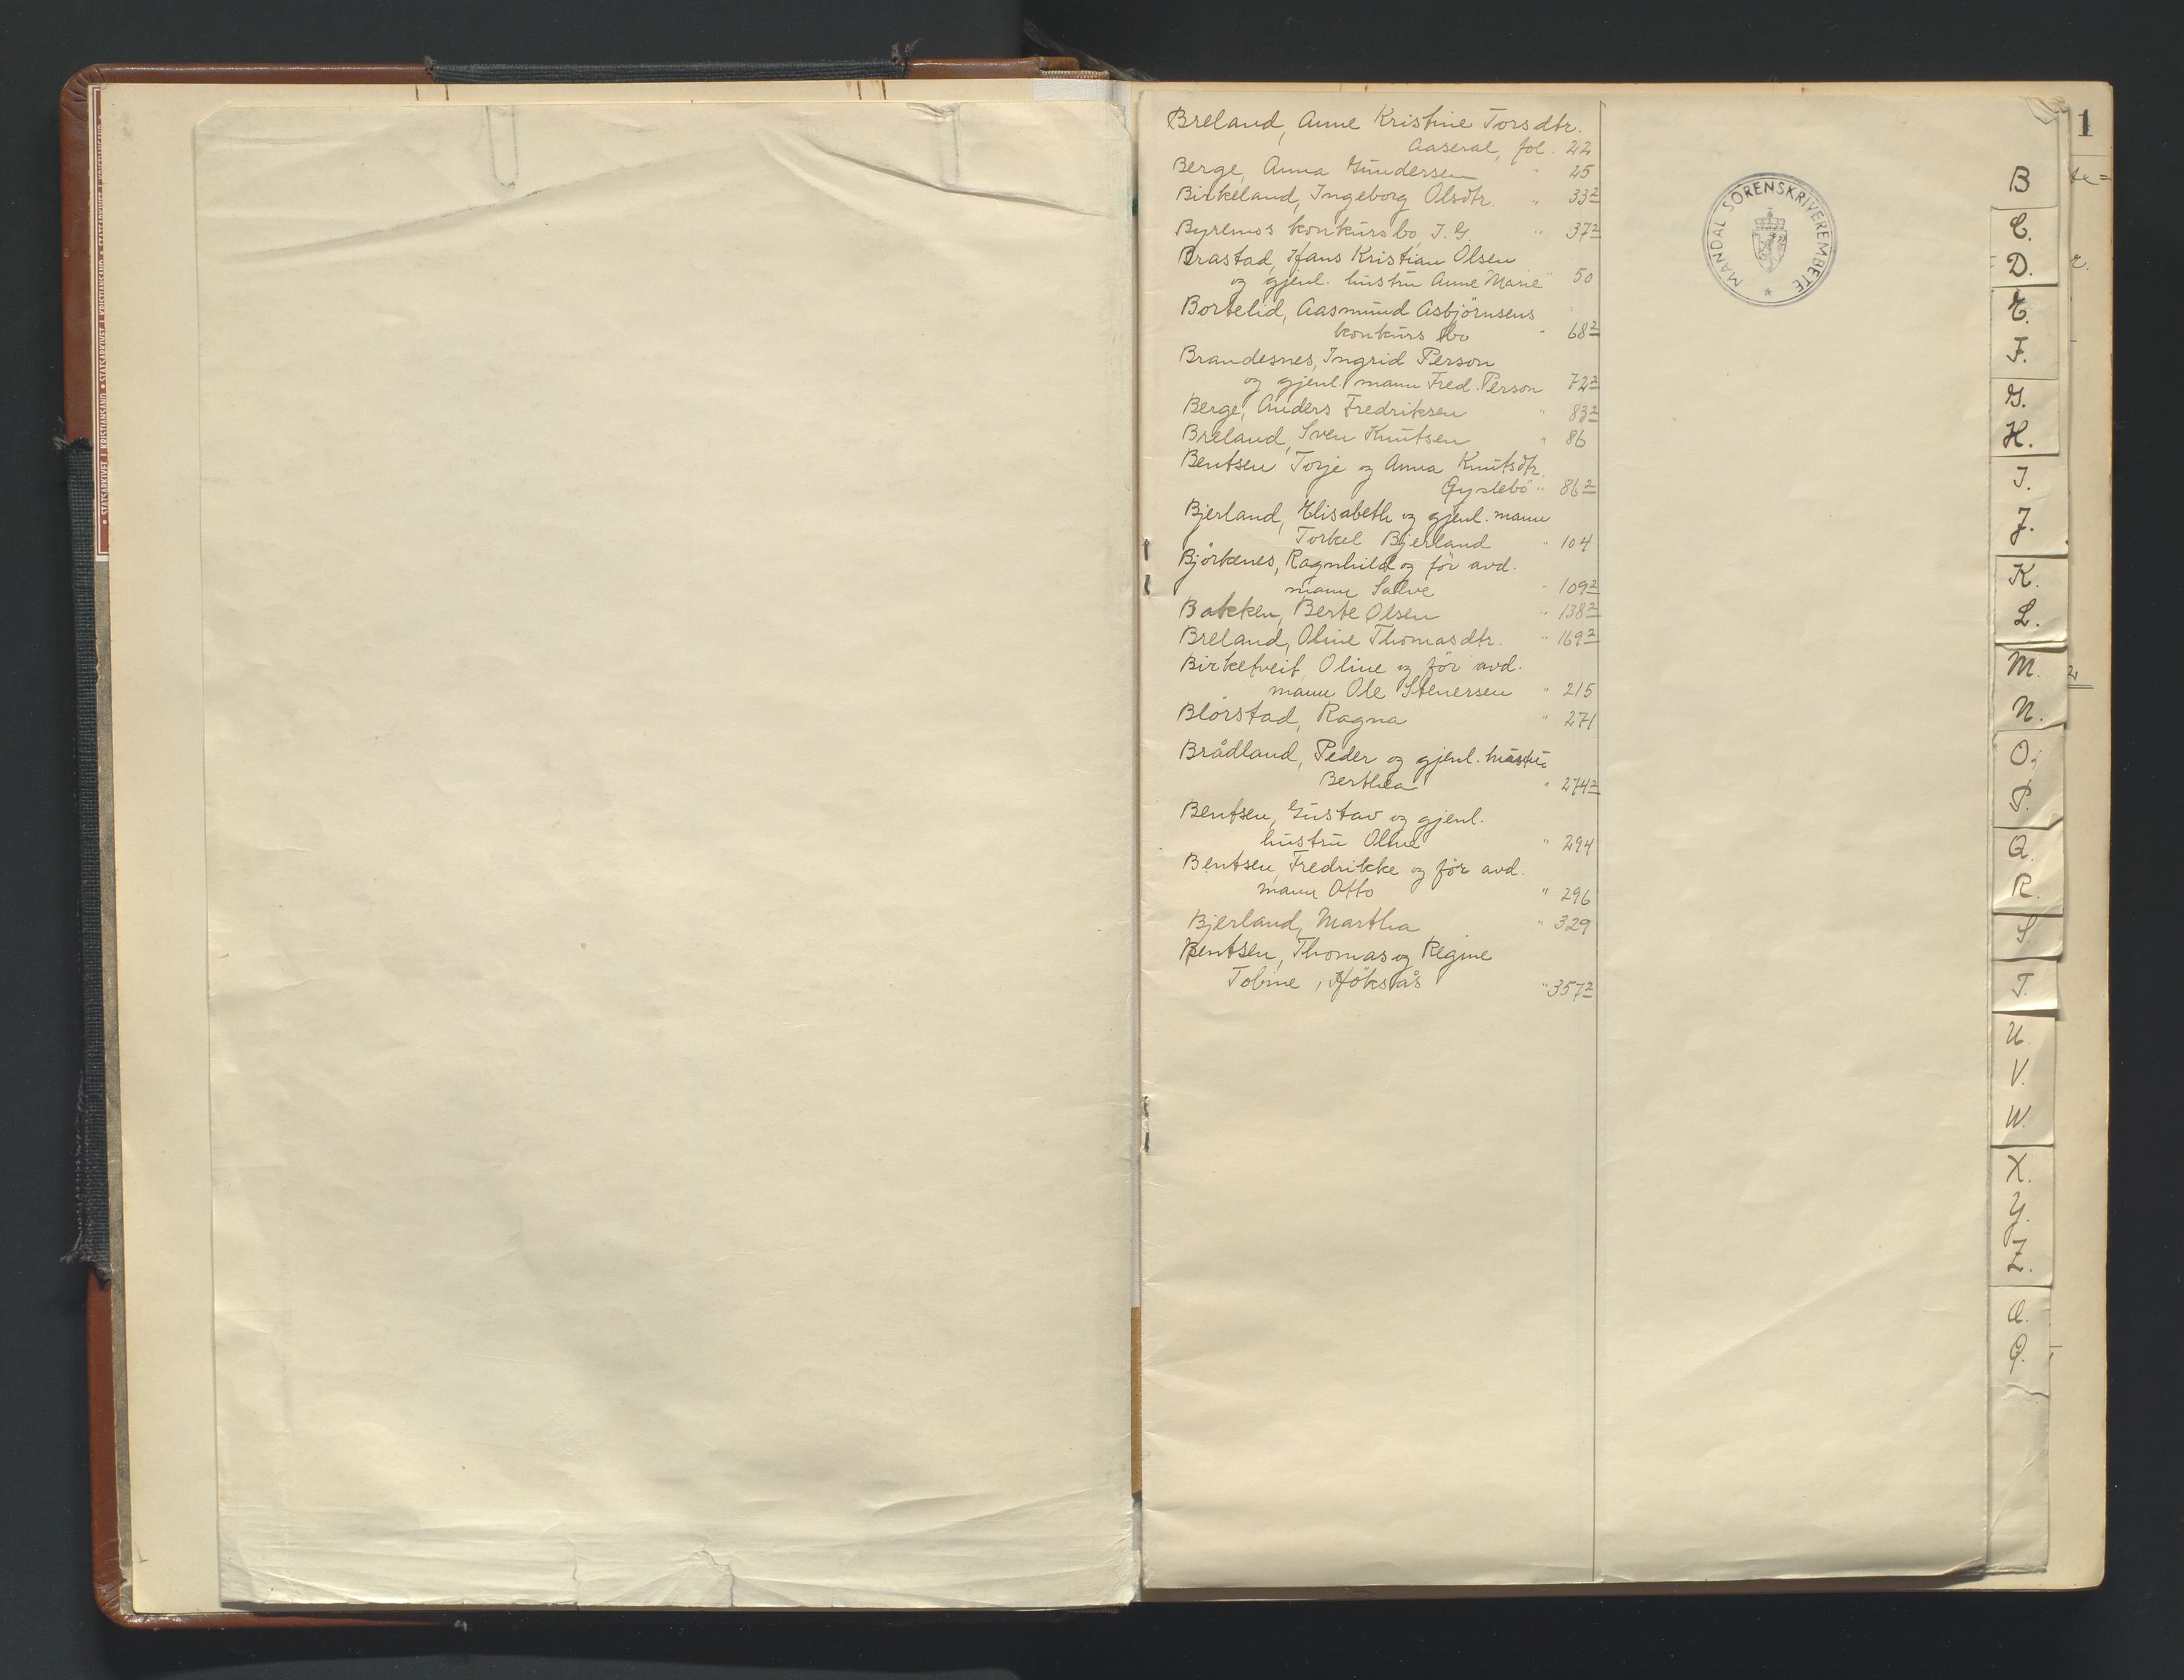 Breland, Anne Kristine Torsdtr.
Aaseral, fol. 22
Berge, Anna Gundersen " 25
Birkeland, Ingeborg Olsdtr. " 33 2
Byremos konkursbo, T. G. " 37 2
Brastad, Hans Kristian Olsen
og gjenl. hustru Anne Marie " 50
Bortelid, Aasmund Asbjörnsens
konkurs bo " 68 2
Brandesnes, Ingrid Person
og gjenl. mann Fred. Person 72 2
Berge, Anders Fredriksen " 83 2
Breland, Sven Knutsen " 86
Bentsen Torje og Anna Knutsdtr.
Øyslebö " 86 2
Bjerland, Elisabeth og gjenl. mann
Torkel Bjerland " 104
Björkenes, Ragnhild og för avd.
mann Salve " 109 2
Bakken, Berte Olsen " 138 2
Breland, Oline Thomasdtr. " 169 2
Birketveit, Oline og för avd.
mann Ole Stenersen " 215
Blørstad, Ragna " 271
Brådland, Peder og gjenl. hustru
Berthea " 274 2
Bentsen, Gustav og gjenl.
hustru Oline " 294
Bentsen, Fredrikke og för avd.
mann Otto " 296
Bjerland, Martha " 329
Bentsen, Thomas og Regine
Tobine, Höksås " 357 2
MANDAL SORENSKRIVEREMBETE
1
B
C.
D.
E.
F.
G.
H.
I.
J.
K.
L.
M.
N.
O.
P.
Q.
R.
S.
T.
U.
V.
W.
X.
Y.
Z.
Æ.
Ø.
STATSARKIVET I KRISTIANSAND • STATSARKIVET I KRISTIANSAND • STATSARKIVET I KRISTIANSAND